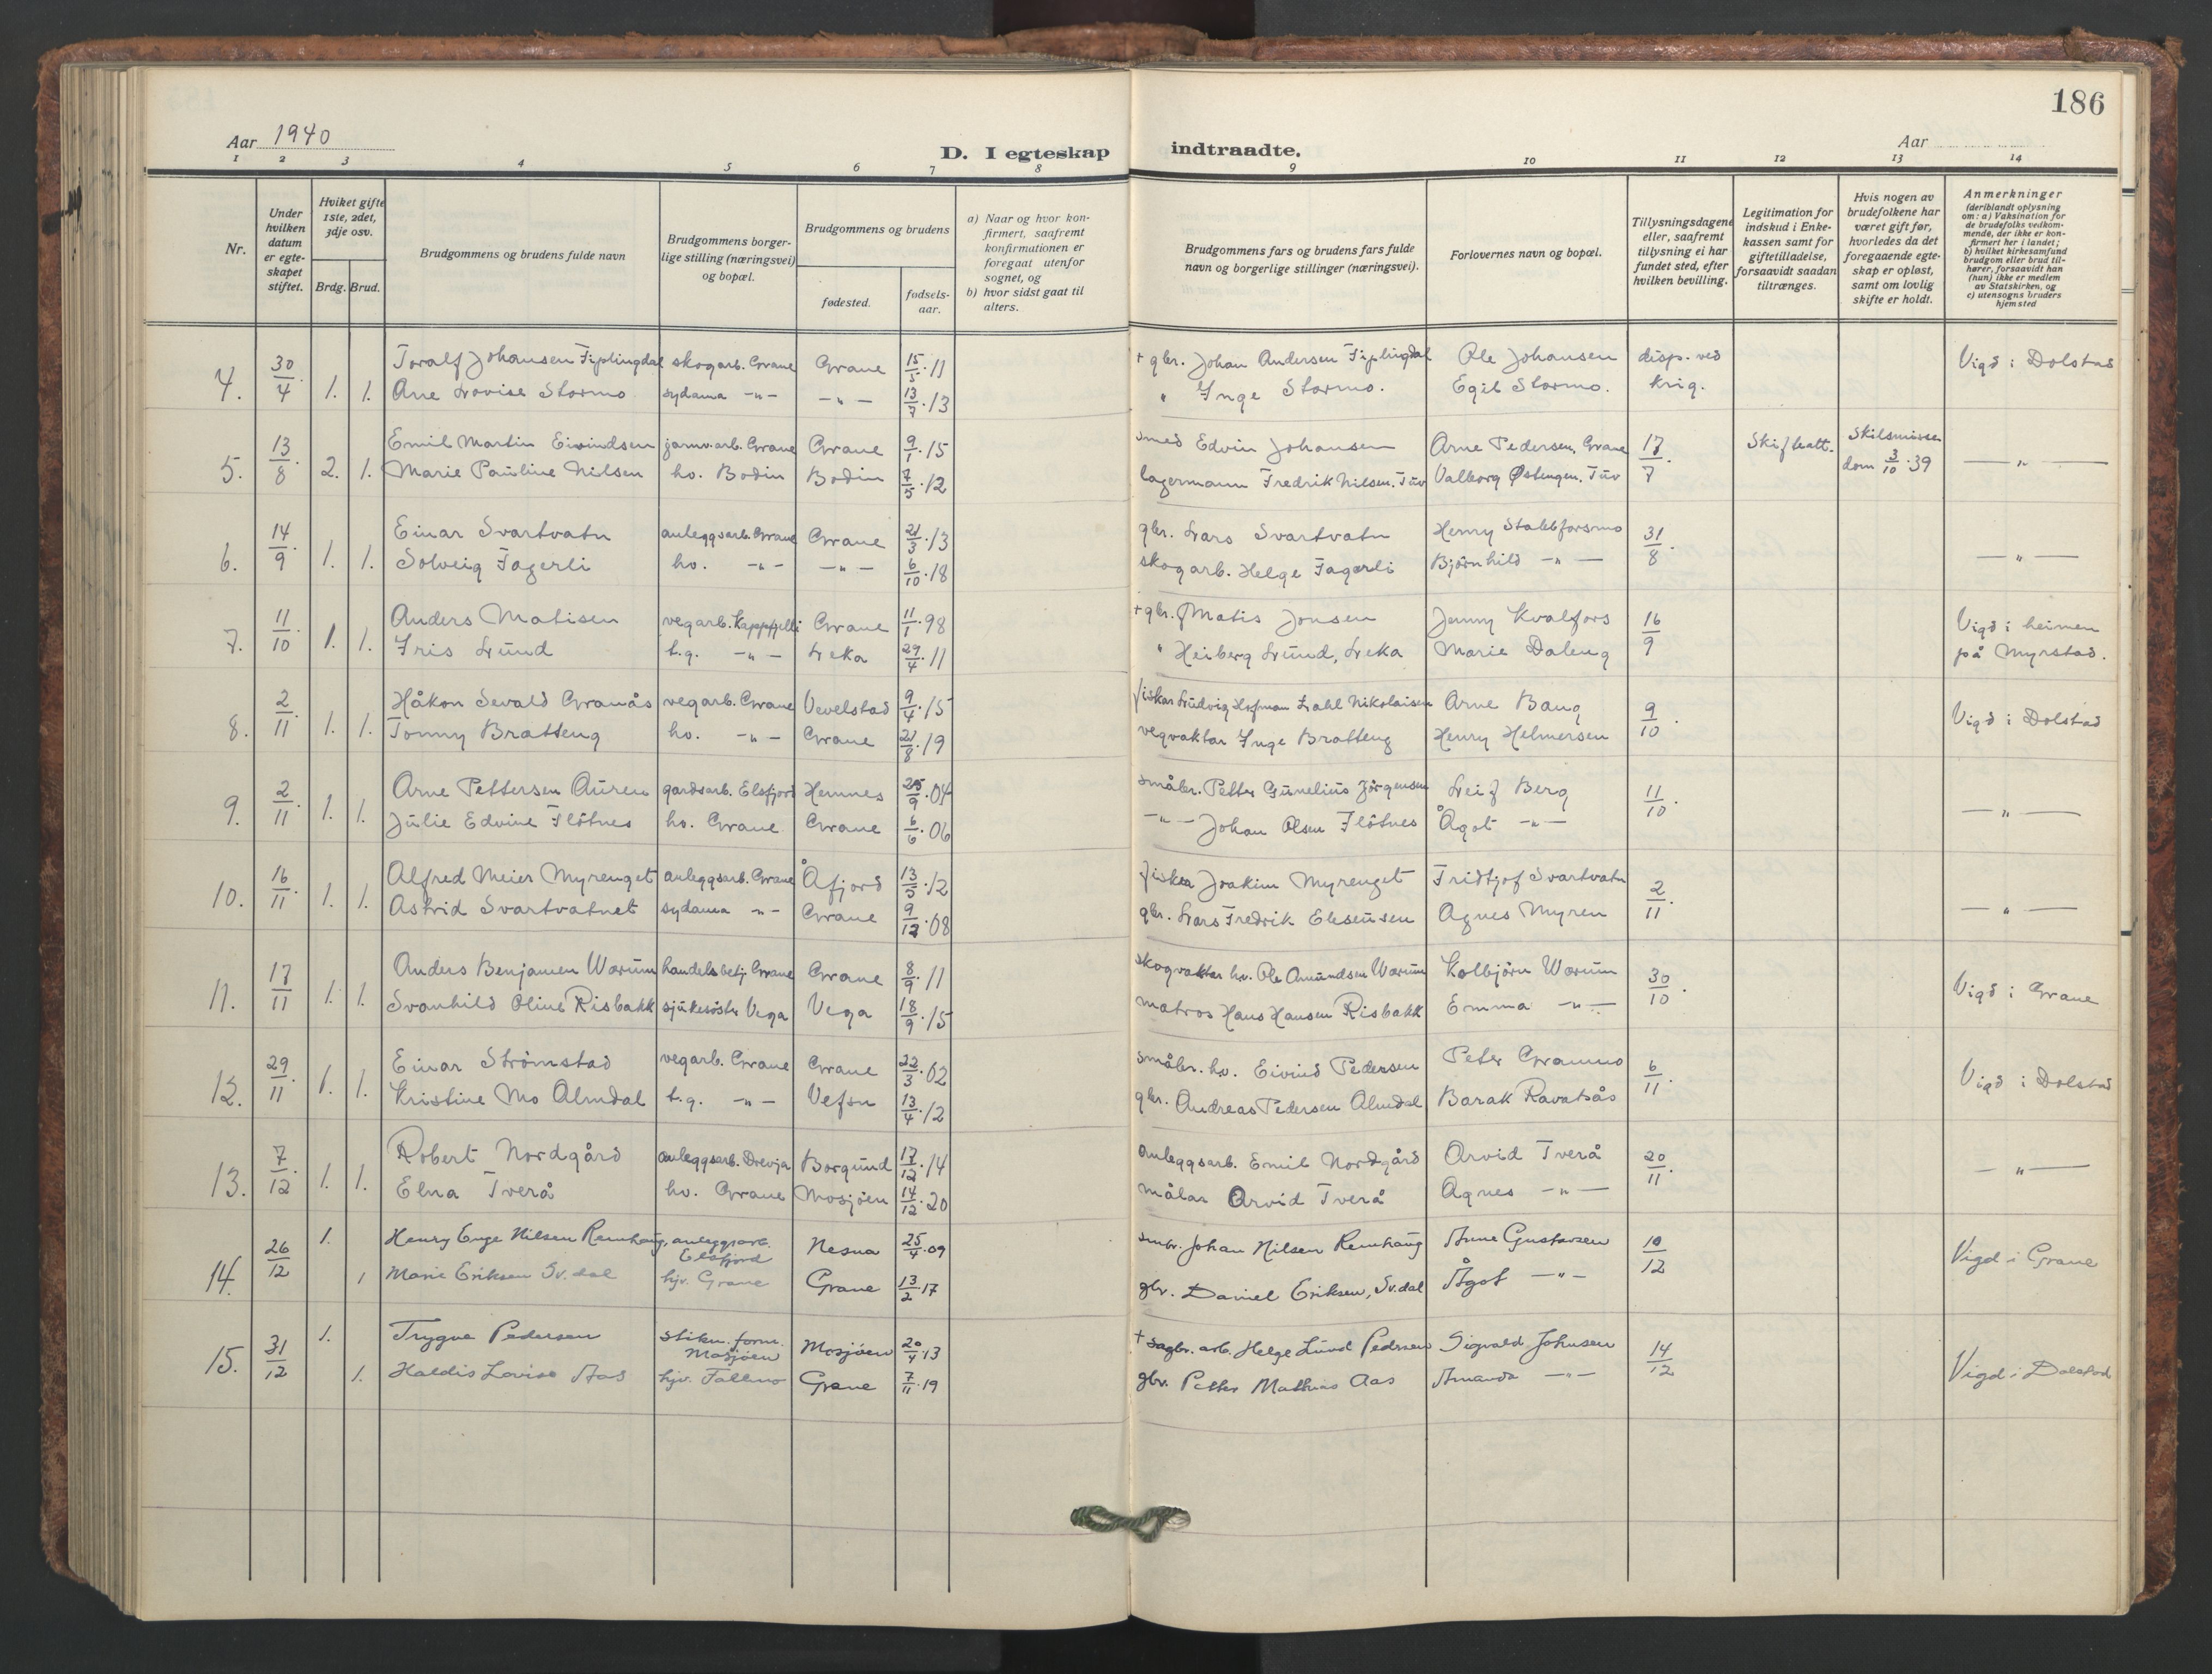 186
Aar 1940
D. I egteskap indtraadte.
Aar
1 2 3 4 5 6 7 8 9 10 11 12 13 14
Nr.
Under hvilken datum er egteskapet stiftet.
Hviket gifte 1ste, 2det, 3dje osv.
Brdg. Brud.
Brudgommens og brudens fulde navn
Brudgommens borgerlige stilling (næringsvei) og bopæl.
Brudgommens og brudens
fødested.
fødselsaar.
a) Naar og hvor konfirmert, saafremt konfirmationen er foregaat utenfor sognet, og
b) hvor sidst gaat til alters.
Brudgommens fars og brudens fars fulde navn og borgerlige stillinger (næringsvei).
Forlovernes navn og bopæl.
Tillysningsdagene eller, saafremt tillysning ei har fundet sted, efter hvilken bevilling.
Legitimation for indskud i Enkekassen samt for giftetilladelse, forsaavidt saadan tiltrænges.
Hvis nogen av brudefolkene har været gift før, hvorledes da det foregaaende egteskap er opløst, samt om lovlig skifte er holdt.
Anmerkninger (deriblandt oplysning om: a) Vaksination for de brudefolks vedkommende, der ikke er konfirmert her i landet; b) hvilket kirkesamfund brudgom eller brud tilhører, forsaavidt han (hun) ikke er medlem av Statskirken, og c) utensogns bruders hjemsted
4. 30/4 1. 1. Toralf Johansen Fiplingdal skogarb. Grane Grane 15/5.11 + gbr. Johan Andersen Fiplingdal Ole Johansen disp. ved Vigd i Dolstad
Ane Lovise Stormo sydama -"- -"- 13/7.13 " Inge Stormo. Egil Stormo. krig.
5. 13/8 2. 1. Emil Martin Eivindsen jarnv.arb. Grane Grane 9/1.15 smed Edvin Johansen Arne Pedersen, Grane 17/7. Skifteatt. Skilsmisse dom 3/10.39 -"-
Marie Pauline Nilsen hv. Bodin Bodin 7/5.12 lagermann Fredrik Nilsen. Tuv Valborg Østengen. Tuv
6. 14/9 1. 1. Einar Svartvatn anleggsarb. Grane Grane 21/3.13 gbr. Lars Svartvatn Henry Stabbforsmo 31/8. -"-
Solveig Fagerli hv. -"- -"- 6/10.18 skogarb. Helge Fagerli Bjørnhild -"-
7. 11/10 1. 1. Anders Matisen vegarb. Kappfjelli Grane 11/1.98 + gbr. Matis Jonsen Jenny Kvalfors 16/9 Vigd i heimen
Iris Lund t.g. -"- Leka 29/4.11 " Heiberg Lund, Leka Marie Daleng på Myrstad.
8. 2/11 1. 1. Håkon Sevald Granås vegarb. Grane Vevelstad 9/4.15 fiskar Ludvig Hofman Dahl Nikolaisen Arne Baug 9/10. Vigd i Dolstad
Tonny Bratteng hv. -"- Grane 21/8.19 vegvaktar Inge Bratteng Henry Helmersen
9. 2/11 1. 1. Arne Pettersen Auren gardsarb. Elsfjord Hemnes 25/9.04 småbr. Petter Cunelius Jørgensen Leif Berg 11/10. -"-
Julie Edvine Fløtnes hv. Grane Grane 6/6.06 -"- Johan Olsen Fløtnes Ågot -"-
10. 16/11 1. 1. Alfred Meier Myrenget anleggsarb. Grane Åfjord 13/5.12 fiskar Joakim Myrenget Fridtjof Svartvatn 2/11. -"-
Astrid Svartvatnet sydama -"- Grane 9/12.08 gbr. Lars Fredrik Elesensen Agnes Myren
11. 17/11 1. 1. Anders Benjamen Wærum handelsbetj. Grane Grane 8/9.11 skogvaktar hv. Ole Amundsen Wærum Kolbjørn Wærum 30/10. Vigd i Grane
Svanhild Oline Risbakk sjukesøster Vega Vega 18/9.15 matros Hans Hansen Risbakk Emma -"-
12. 29/11 1. 1. Einar Strømstad vegarb. Grane Grane 22/3.02 småbr. hv. Eivind Pedersen Peter Granmo 6/11. Vigd i Dolstad
Kristine Mo Almdal t.g. -"- Vefsn 13/4.12 gbr. Andreas Pedersen Almdal Barak Ravatsås
13. 7/12 1. 1. Robert Nordgård anleggsarb. Drevja Borgund 17/12.14 anleggsarb. Emil Nordgård Arvid Tverå 20/11. -"-
Elna Tverå hv. Grane Mosjøen 14/12.20 målar Arvid Tverå Agnes -"-
14. 26/12 1. Henry Enge Nilsen Remhaug, anleggsarb. Elsfjord Nesna 25/4.09 smbr. Johan Nilsen Remhaug Arne Gustavsen 10/12 Vigd i Grane
1 Marie Eriksen Sv.dal hjv. Grane Grane 13/2.17 gbr. Daniel Eriksen, Sv.dal Ågot -"-
15. 31/12 1. Trygve Pedersen stikn. form. Mosjøen Mosjøen 20/4.13 + sagbr. arb. Helge Lund Pedersen Sigvald Johnsen 14/12 Vigd i Dolstad
1. Haldis Lovise Aas hjv. Fallmo Grane 7/11.19 gbr. Petter Mathias Aas Amanda -"-